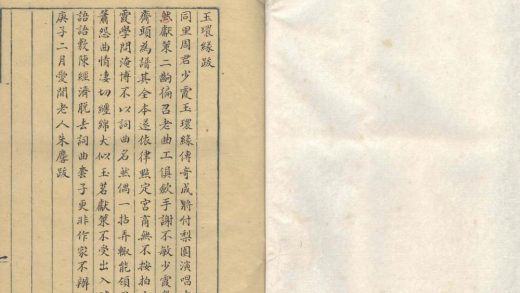 玉環緣跋
同里周君少霞玉環緣傳奇成將付梨園演唱
然獻策二齣偏召老曲工俱斂手謝不敏少霞
齊頭為譜其全本遂依律點定宮商無不按拍
霞學問淹博不以詞曲名然偶一拈弄輒能領
蕭怨曲情凄切纏綿大似玉茗獻策不受出入
語語數陳經濟脫去詞曲套子更非作家不辨
庚子二月愛閒老人朱塵跋